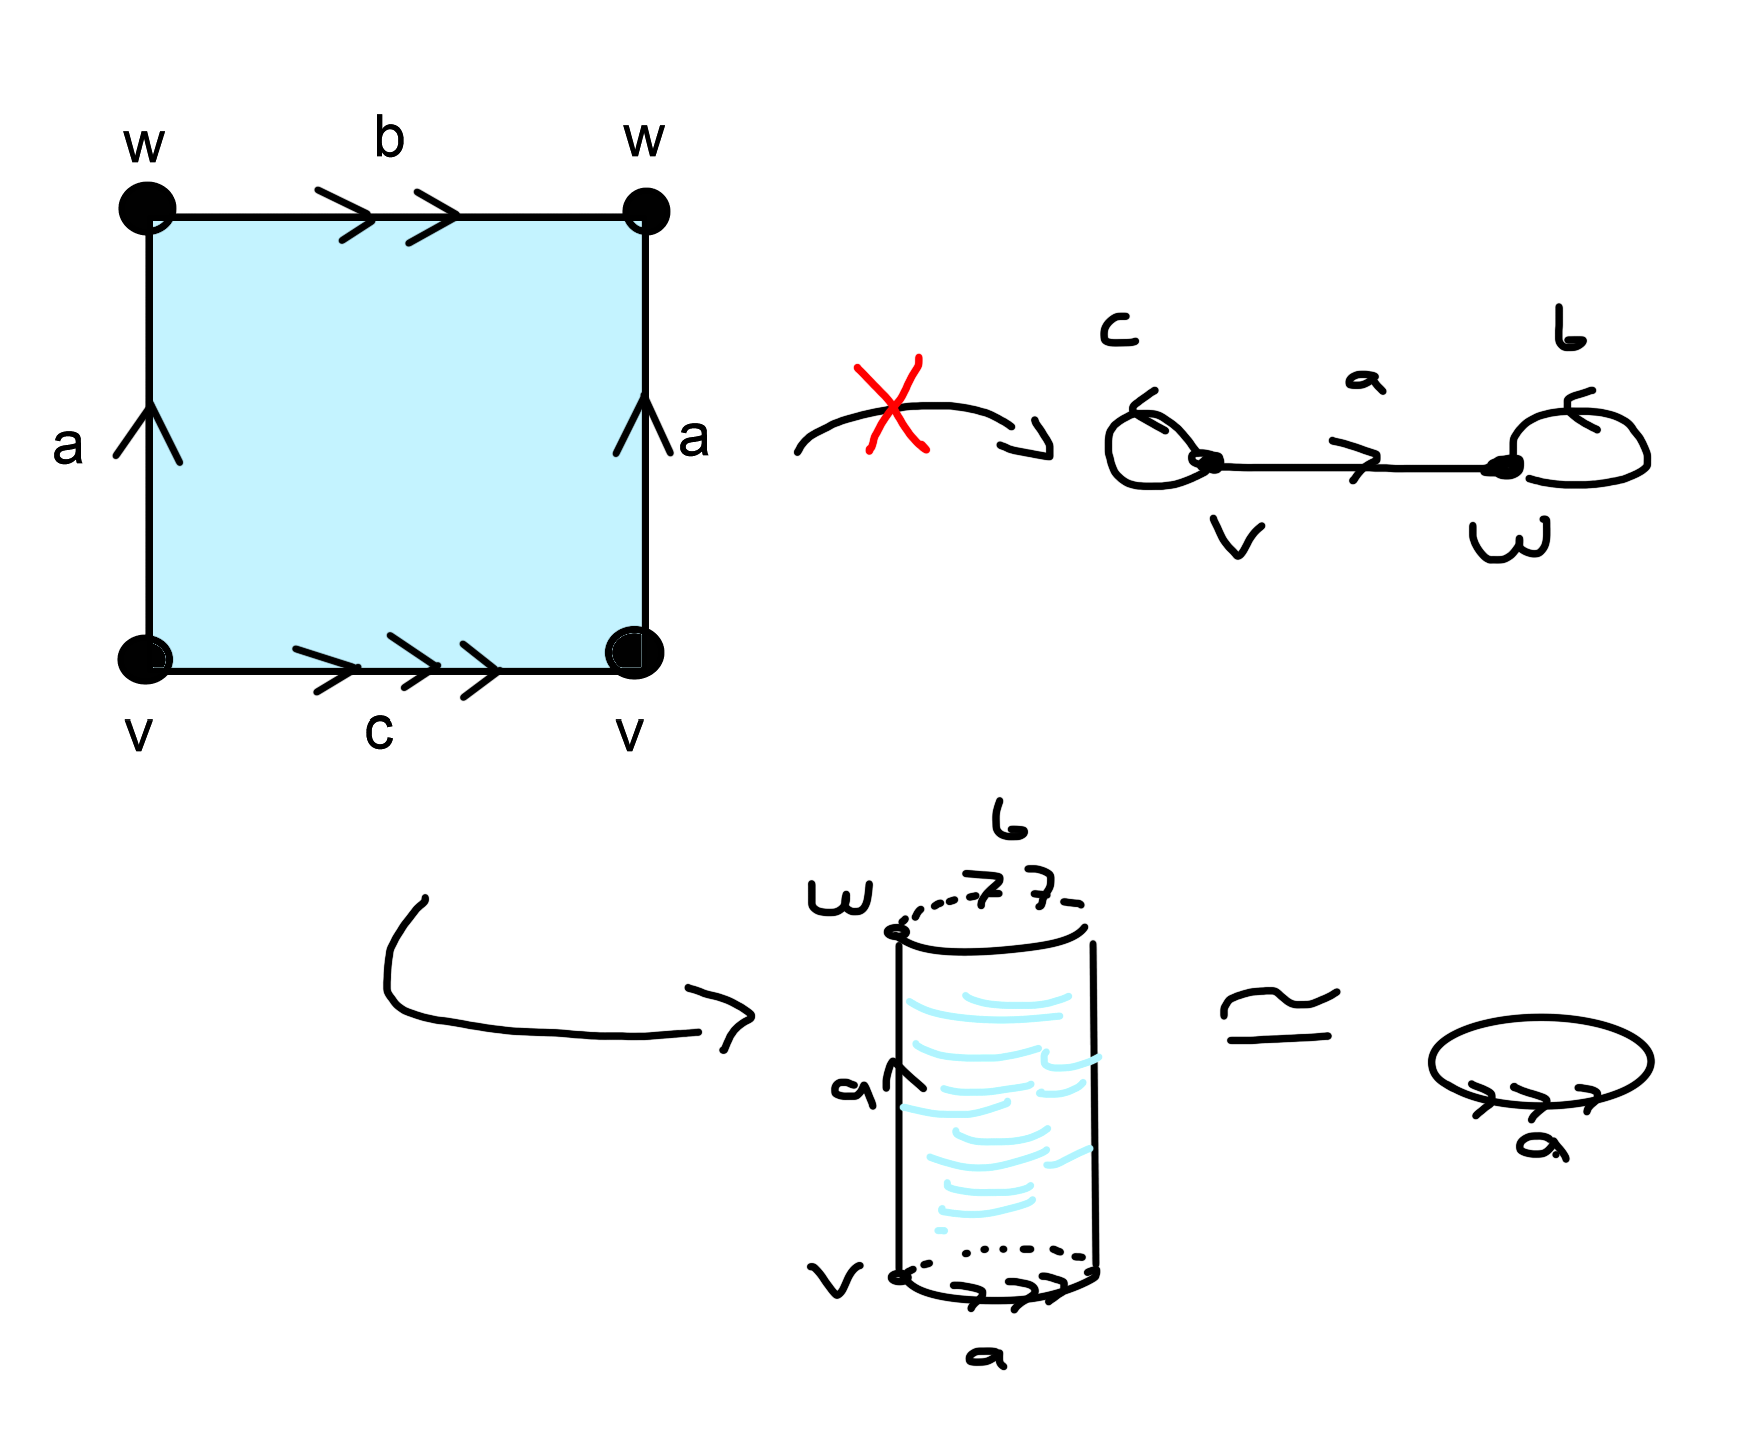 w b w
a a
v c v
c a b
v w
b
w
a
≃
v
a
a